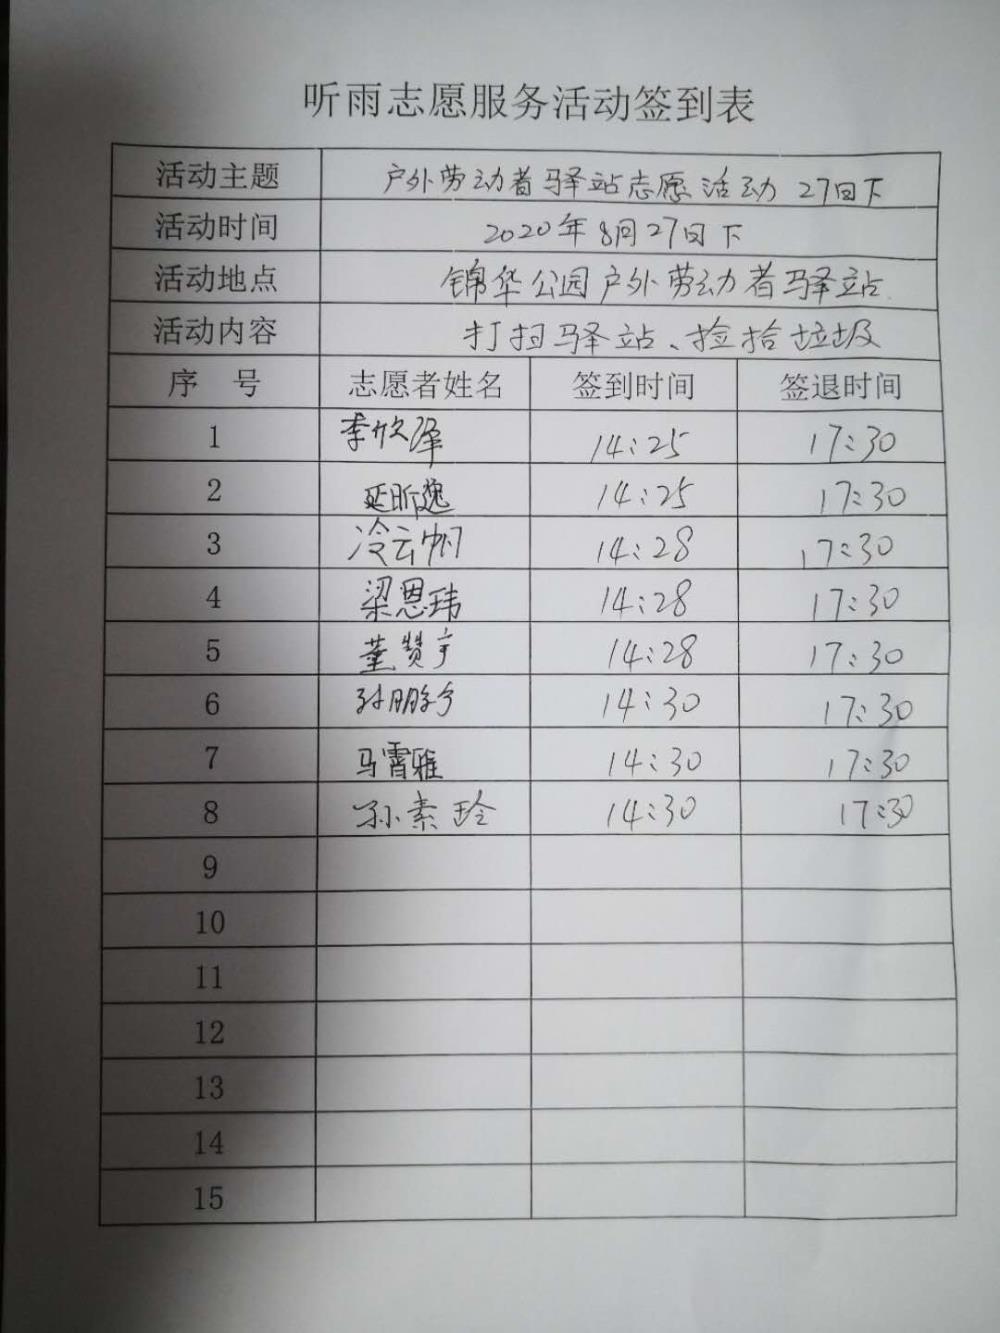 听雨志愿服务活动签到表
活动主题 户外劳动者驿站志愿活动 27日下
活动时间 2020年8月27日下
活动地点 锦华公园户外劳动者驿站
活动内容 打扫驿站、捡拾垃圾
序 号 志愿者姓名 签到时间 签退时间
1 李欣泽 14:25 17:30
2 延昕逸 14:25 17:30
3 冷云帆 14:28 17:30
4 梁恩玮 14:28 17:30
5 董赞宇 14:28 17:30
6 孙鹏 14:30 17:30
7 马霄雅 14:30 17:30
8 孙素玲 14:30 17:30
9
10
11
12
13
14
15